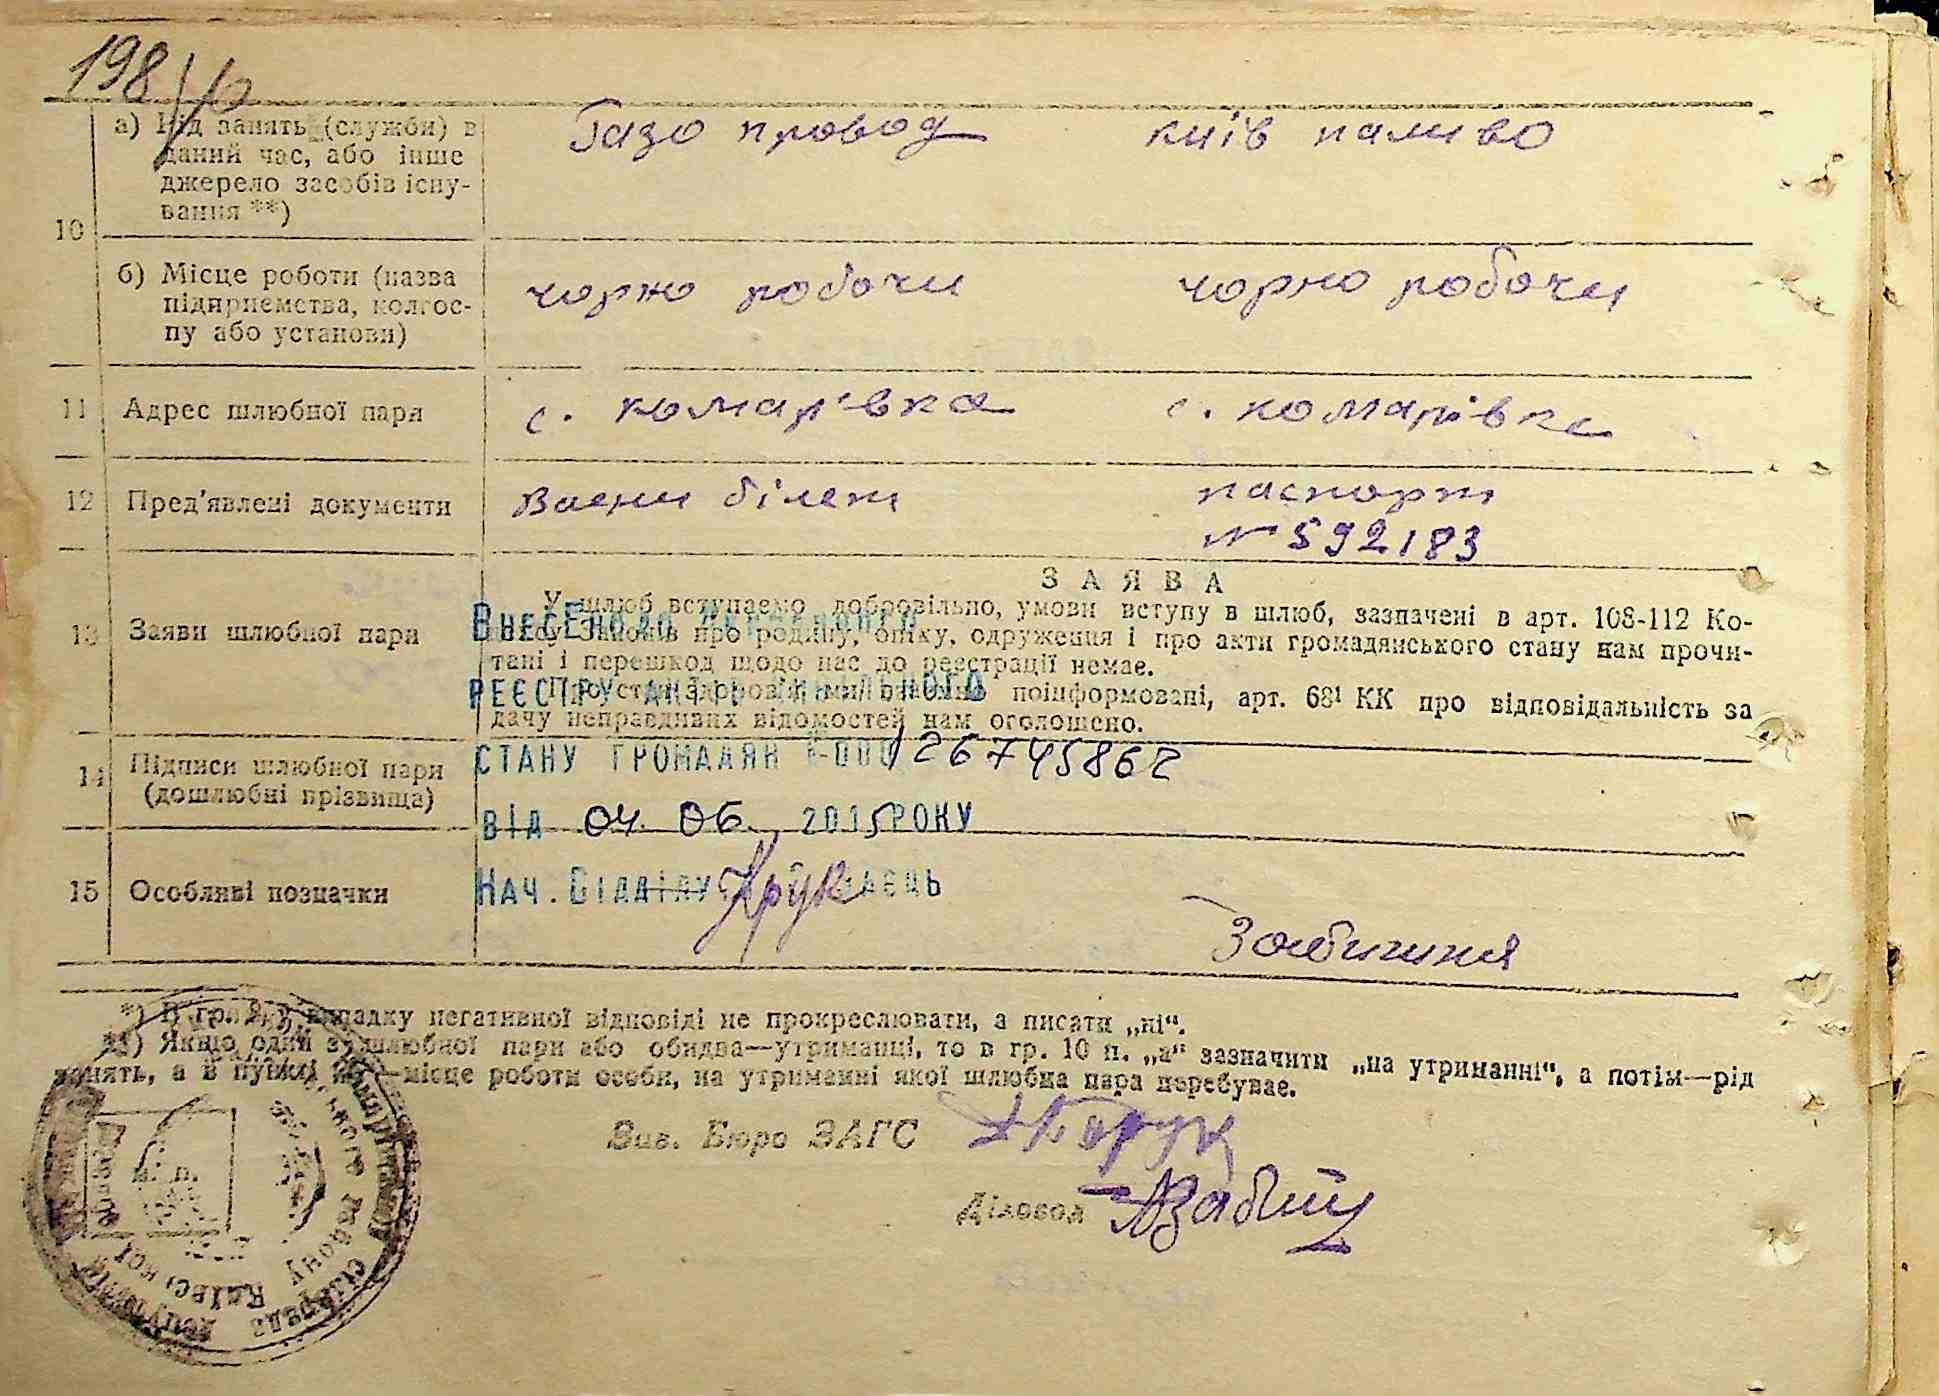 198
а) Рід занять (служби) в
даний час, або інше
джерело засобів існу-
вання **)
Газо провод
київ паливо
10
б) Місце роботи (назва
підприємства, колгос-
пу або установи)
чорно робочи
чорно робочи
11
Адрес шлюбної пари
с. комарівка
с. комарівка
12
Пред'явлені документи
Воени білет
паспорт
№ 592183
13
Заяви шлюбної пари
ЗАЯВА
У шлюб вступаємо добровільно, умови вступу в шлюб, зазначені в арт. 108-112 Ко-
дексу Законів про родину, опіку, одруження і про акти громадянського стану нам прочи-
тані і перешкод щодо нас до реєстрації немає.
Про стан здоров'я ми взаємно поінформовані, арт. 68¹ КК про відповідальність за
дачу неправдивих відомостей нам оголошено.
ВНЕСЕНО ДО ДЕРЖАВНОГО
РЕЄСТРУ АКТІВ ЦИВІЛЬНОГО
СТАНУ ГРОМАДЯН 126745862
ВІД 04 06 2015 РОКУ
НАЧ. ВІДДІЛУ
14
Підписи шлюбної пари
(дошлюбні прізвища)
15
Особливі позначки
Крук
*) В гр. випадку негативної відповіді не прокреслювати, а писати „ні“.
**) Якщо один з шлюбної пари або обидва—утриманці, то в гр. 10 п. „а“ зазначити „на утриманні“, а потім—рід
занять, а в пункті —місце роботи особи, на утриманні якої шлюбна пара перебуває.
Зав. Бюро ЗАГС
Діловод
м. п.